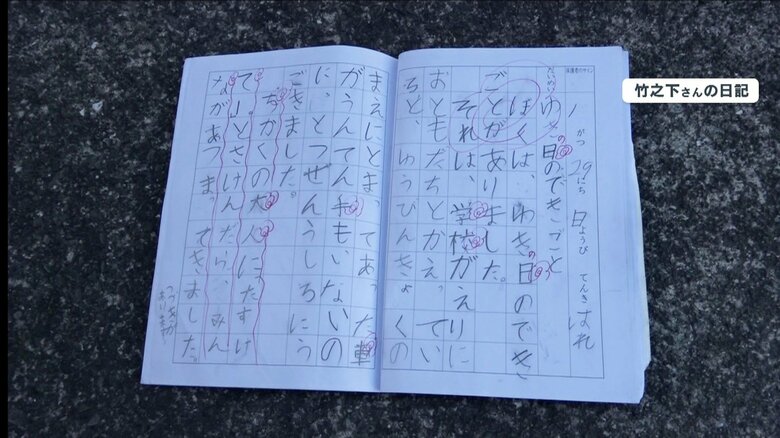 竹之下さんの日記
保護者のサイン
1がつ29にち日ようび てんき はれ
だいめい ゆきの日のできごと
ぼくは、ゆきの日のでき
ごとがありました。
それは、学校がえりに
おともだちとかえってい
ると、ゆうびんきょくの
まえにとまってあった車
がうんてん手もいないの
に、とつぜんうしろにう
ごきました。
ちかくの大人にたすけ
て」とさけんだら、みん
ながあつまってきました。
つづきが
あります